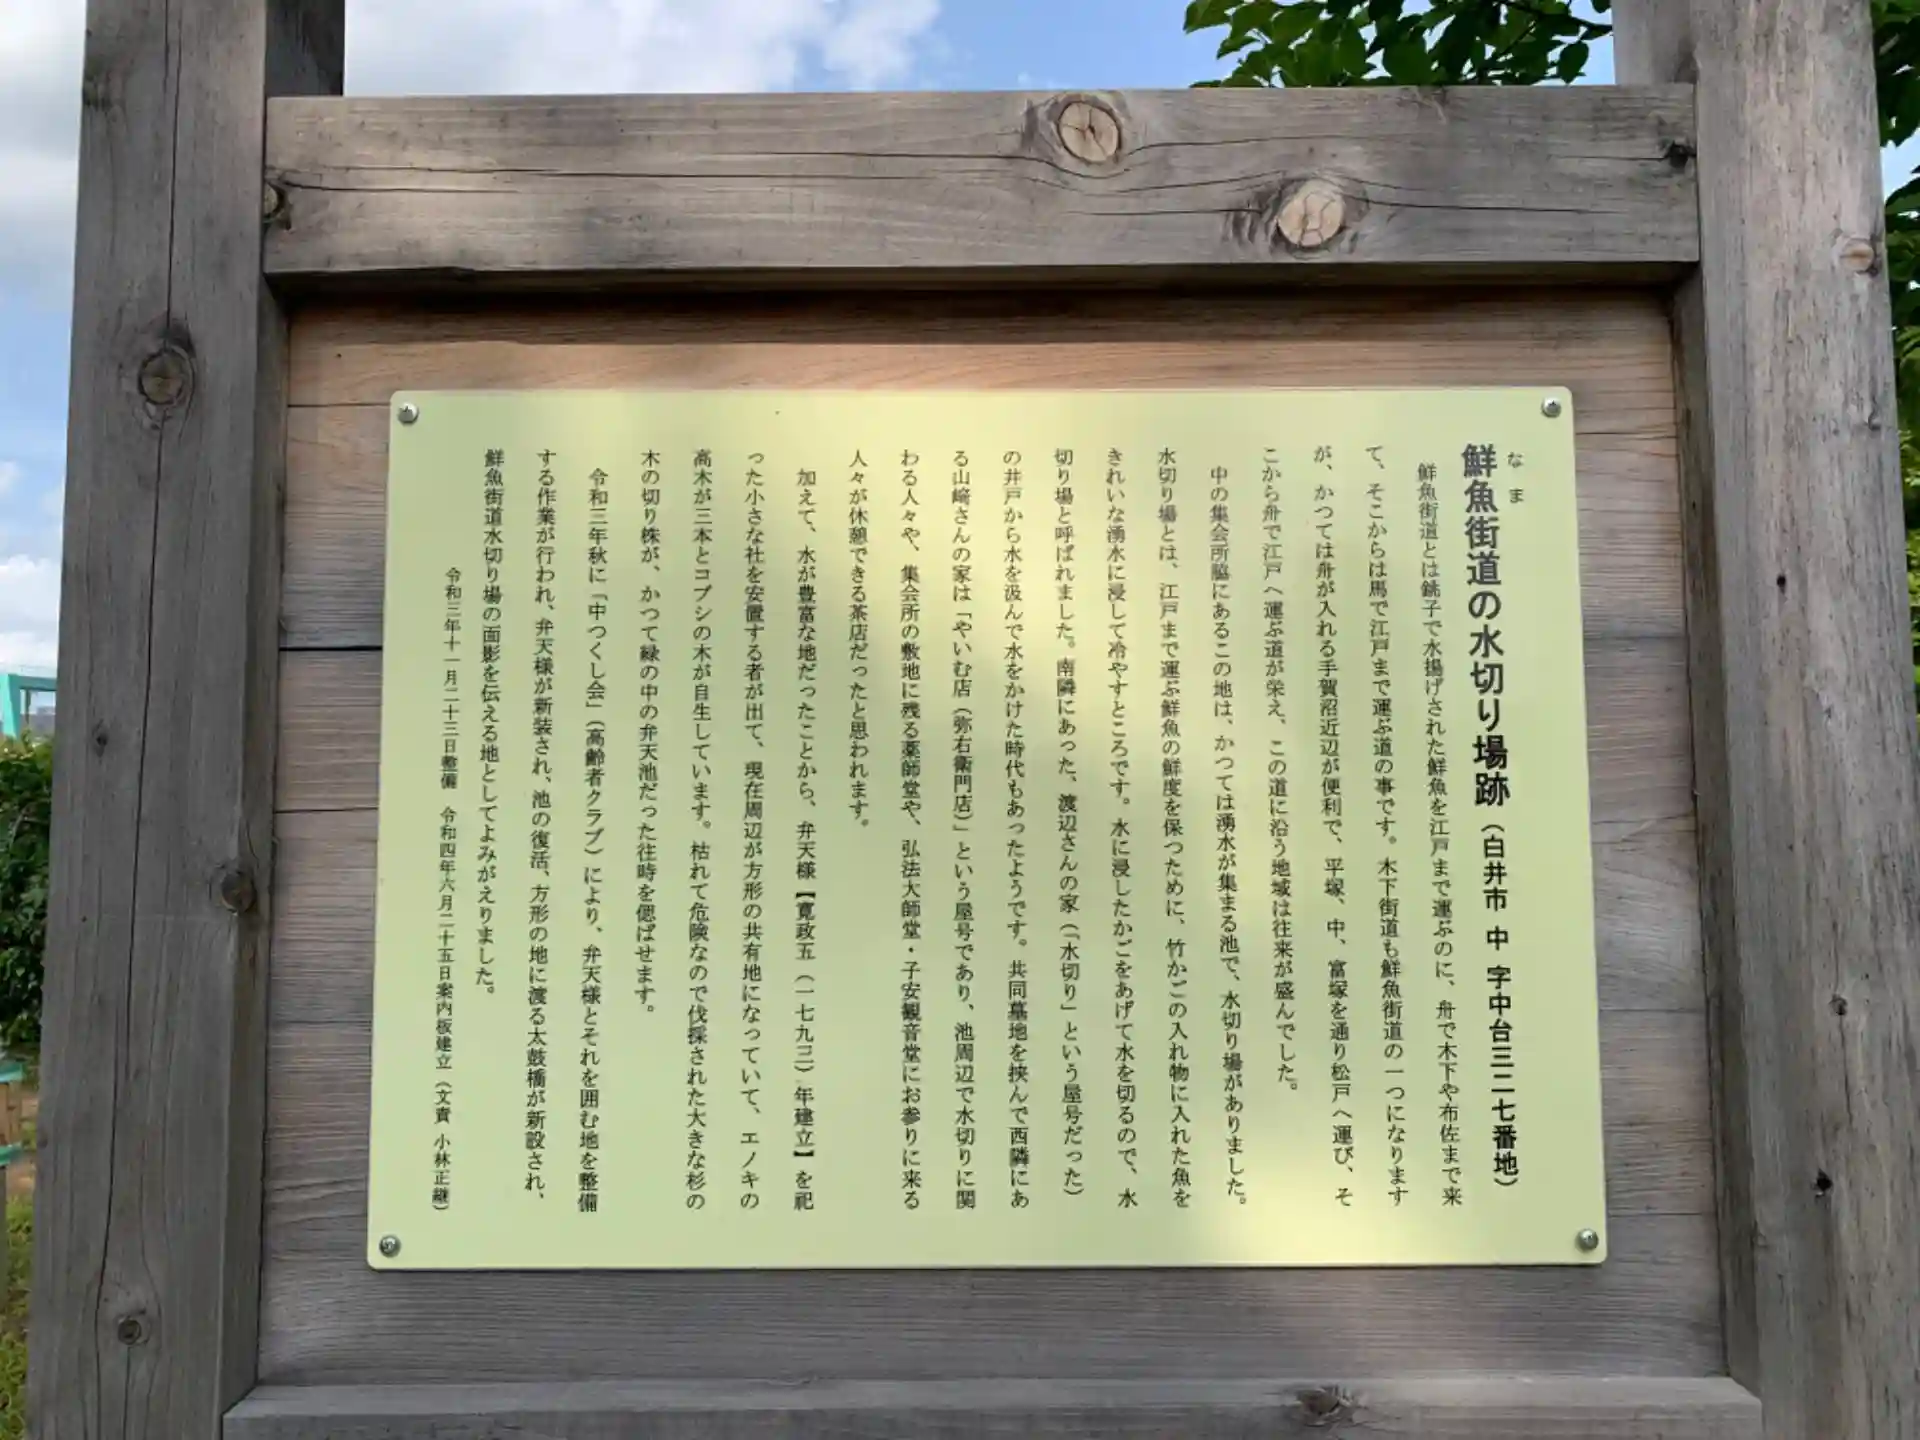 鮮魚街道の水切り場跡（白井市 中 字中台三二七番地）
なま
鮮魚街道とは銚子で水揚げされた鮮魚を江戸まで運ぶのに、舟で木下や布佐まで来
て、そこからは馬で江戸まで運ぶ道の事です。木下街道も鮮魚街道の一つになります
が、かつては舟が入れる手賀沼近辺が便利で、平塚、中、富塚を通り松戸へ運び、そ
こから舟で江戸へ運ぶ道が栄え、この道に沿う地域は往来が盛んでした。
中の集会所脇にあるこの地は、かつては湧水が集まる池で、水切り場がありました。
水切り場とは、江戸まで運ぶ鮮魚の鮮度を保つために、竹かごの入れ物に入れた魚を
きれいな湧水に浸して冷やすところです。水に浸したかごをあげて水を切るので、水
切り場と呼ばれました。南隣にあった、渡辺さんの家（「水切り」という屋号だった）
の井戸から水を汲んで水をかけた時代もあったようです。共同墓地を挟んで西隣にあ
る山﨑さんの家は「やいむ店（弥右衛門店）」という屋号であり、池周辺で水切りに関
わる人々や、集会所の敷地に残る薬師堂や、弘法大師堂・子安観音堂にお参りに来る
人々が休憩できる茶店だったと思われます。
加えて、水が豊富な地だったことから、弁天様【寛政五（一七九三）年建立】を祀
った小さな社を安置する者が出て、現在周辺が方形の共有地になっていて、エノキの
高木が三本とコブシの木が自生しています。枯れて危険なので伐採された大きな杉の
木の切り株が、かつて緑の中の弁天池だった往時を偲ばせます。
令和三年秋に「中つくし会」（高齢者クラブ）により、弁天様とそれを囲む地を整備
する作業が行われ、弁天様が新装され、池の復活、方形の地に渡る太鼓橋が新設され、
鮮魚街道水切り場の面影を伝える地としてよみがえりました。
令和三年十一月二十三日整備　令和四年六月二十五日案内板建立（文責 小林正継）